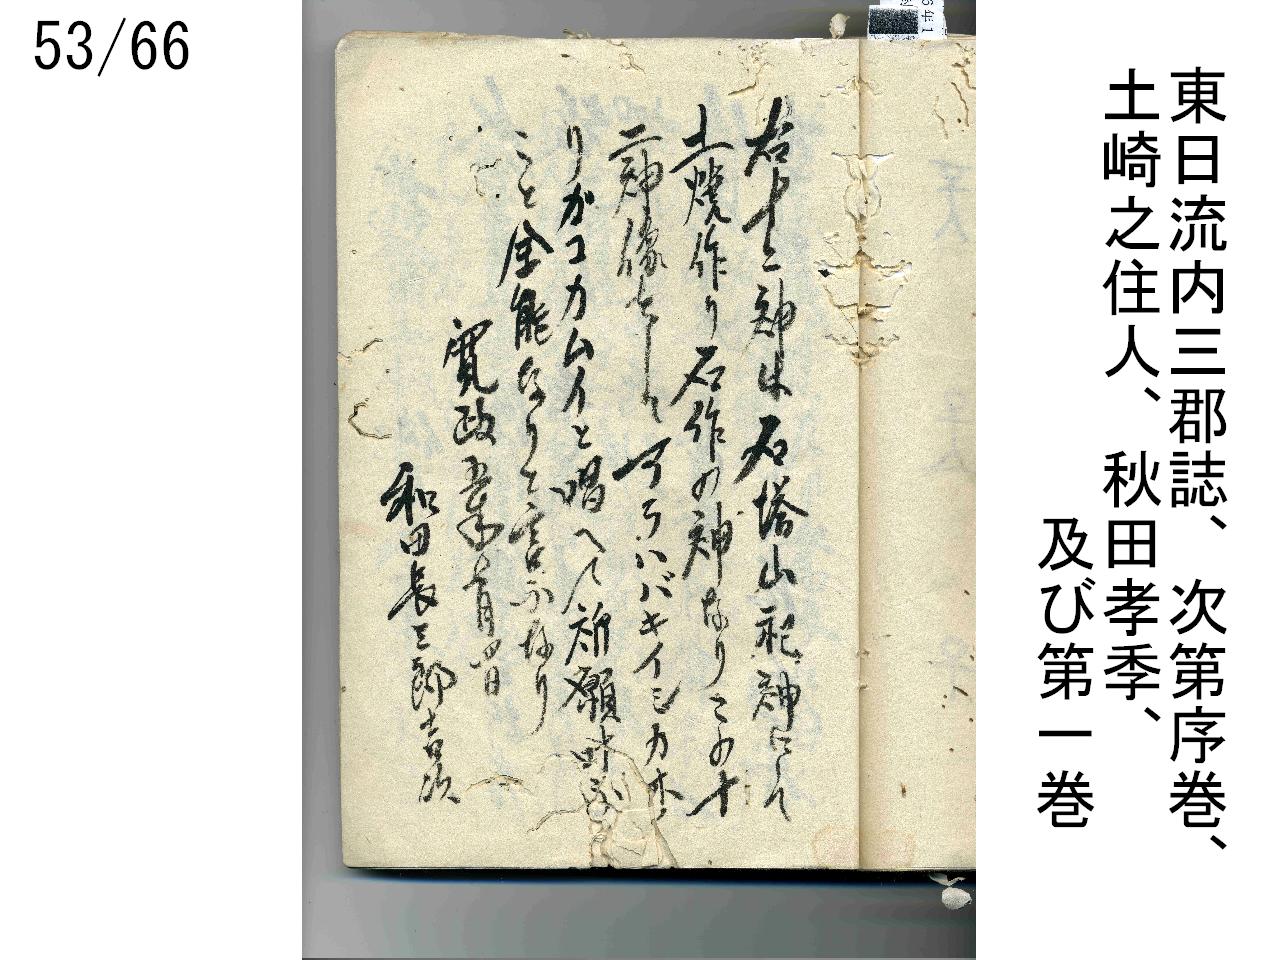 53/66
東日流内三郡誌、次第序巻、
土崎之住人、秋田孝季、
及び第一巻
右十二神は石塔山祀神にして
土焼作り石作の神なりこの十
二神像をして アラハバキイシカホ
リガコカムイと唱へて祈願叶ふ
こと全能なりと言ふなり
寛政五年 月 日
和田長三郎吉次